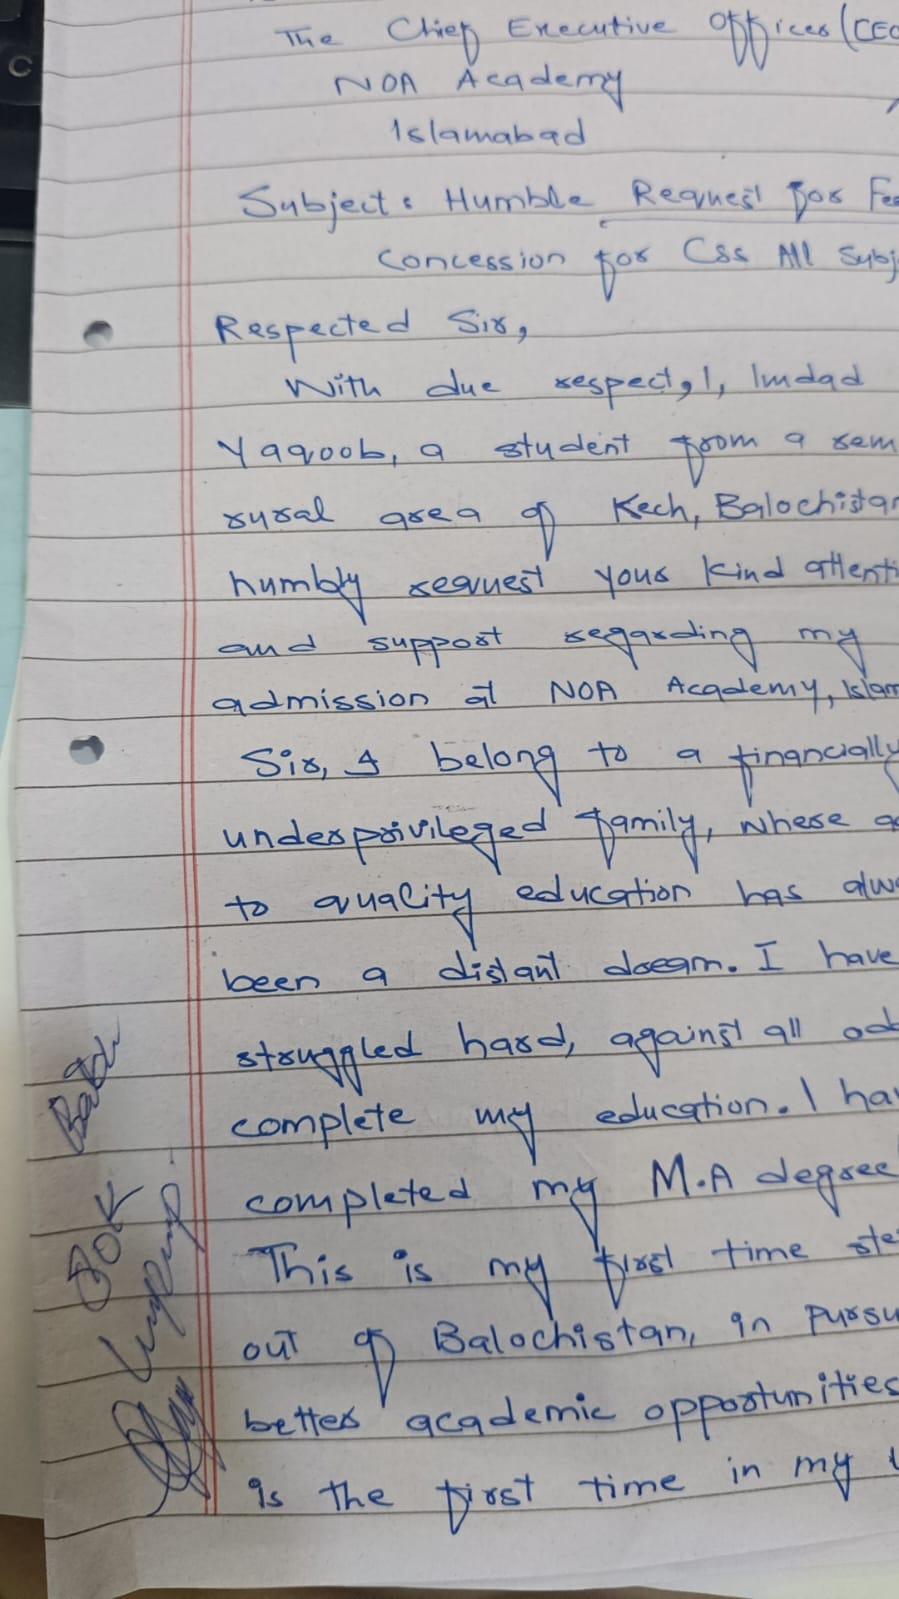 The Chief Executive Officer (CEO
NOA Academy
Islamabad
Subject: Humble Request for Fee
Concession for Css All Subj
Respected Sir,
With due respect, I, Imdad
Yaqoob, a student from a rem
rural area of Kech, Balochistan
humbly request your kind attenti
and support regarding my
admission at NOA Academy, Islam
Sir, I belong to a financially
underprivileged family, where ac
to quality education has alwa
been a distant dream. I have
struggled hard, against all odd
complete my education. I hav
completed my M.A degree
This is my first time ste
out of Balochistan, in pursu
better academic opportunities
is the first time in my l